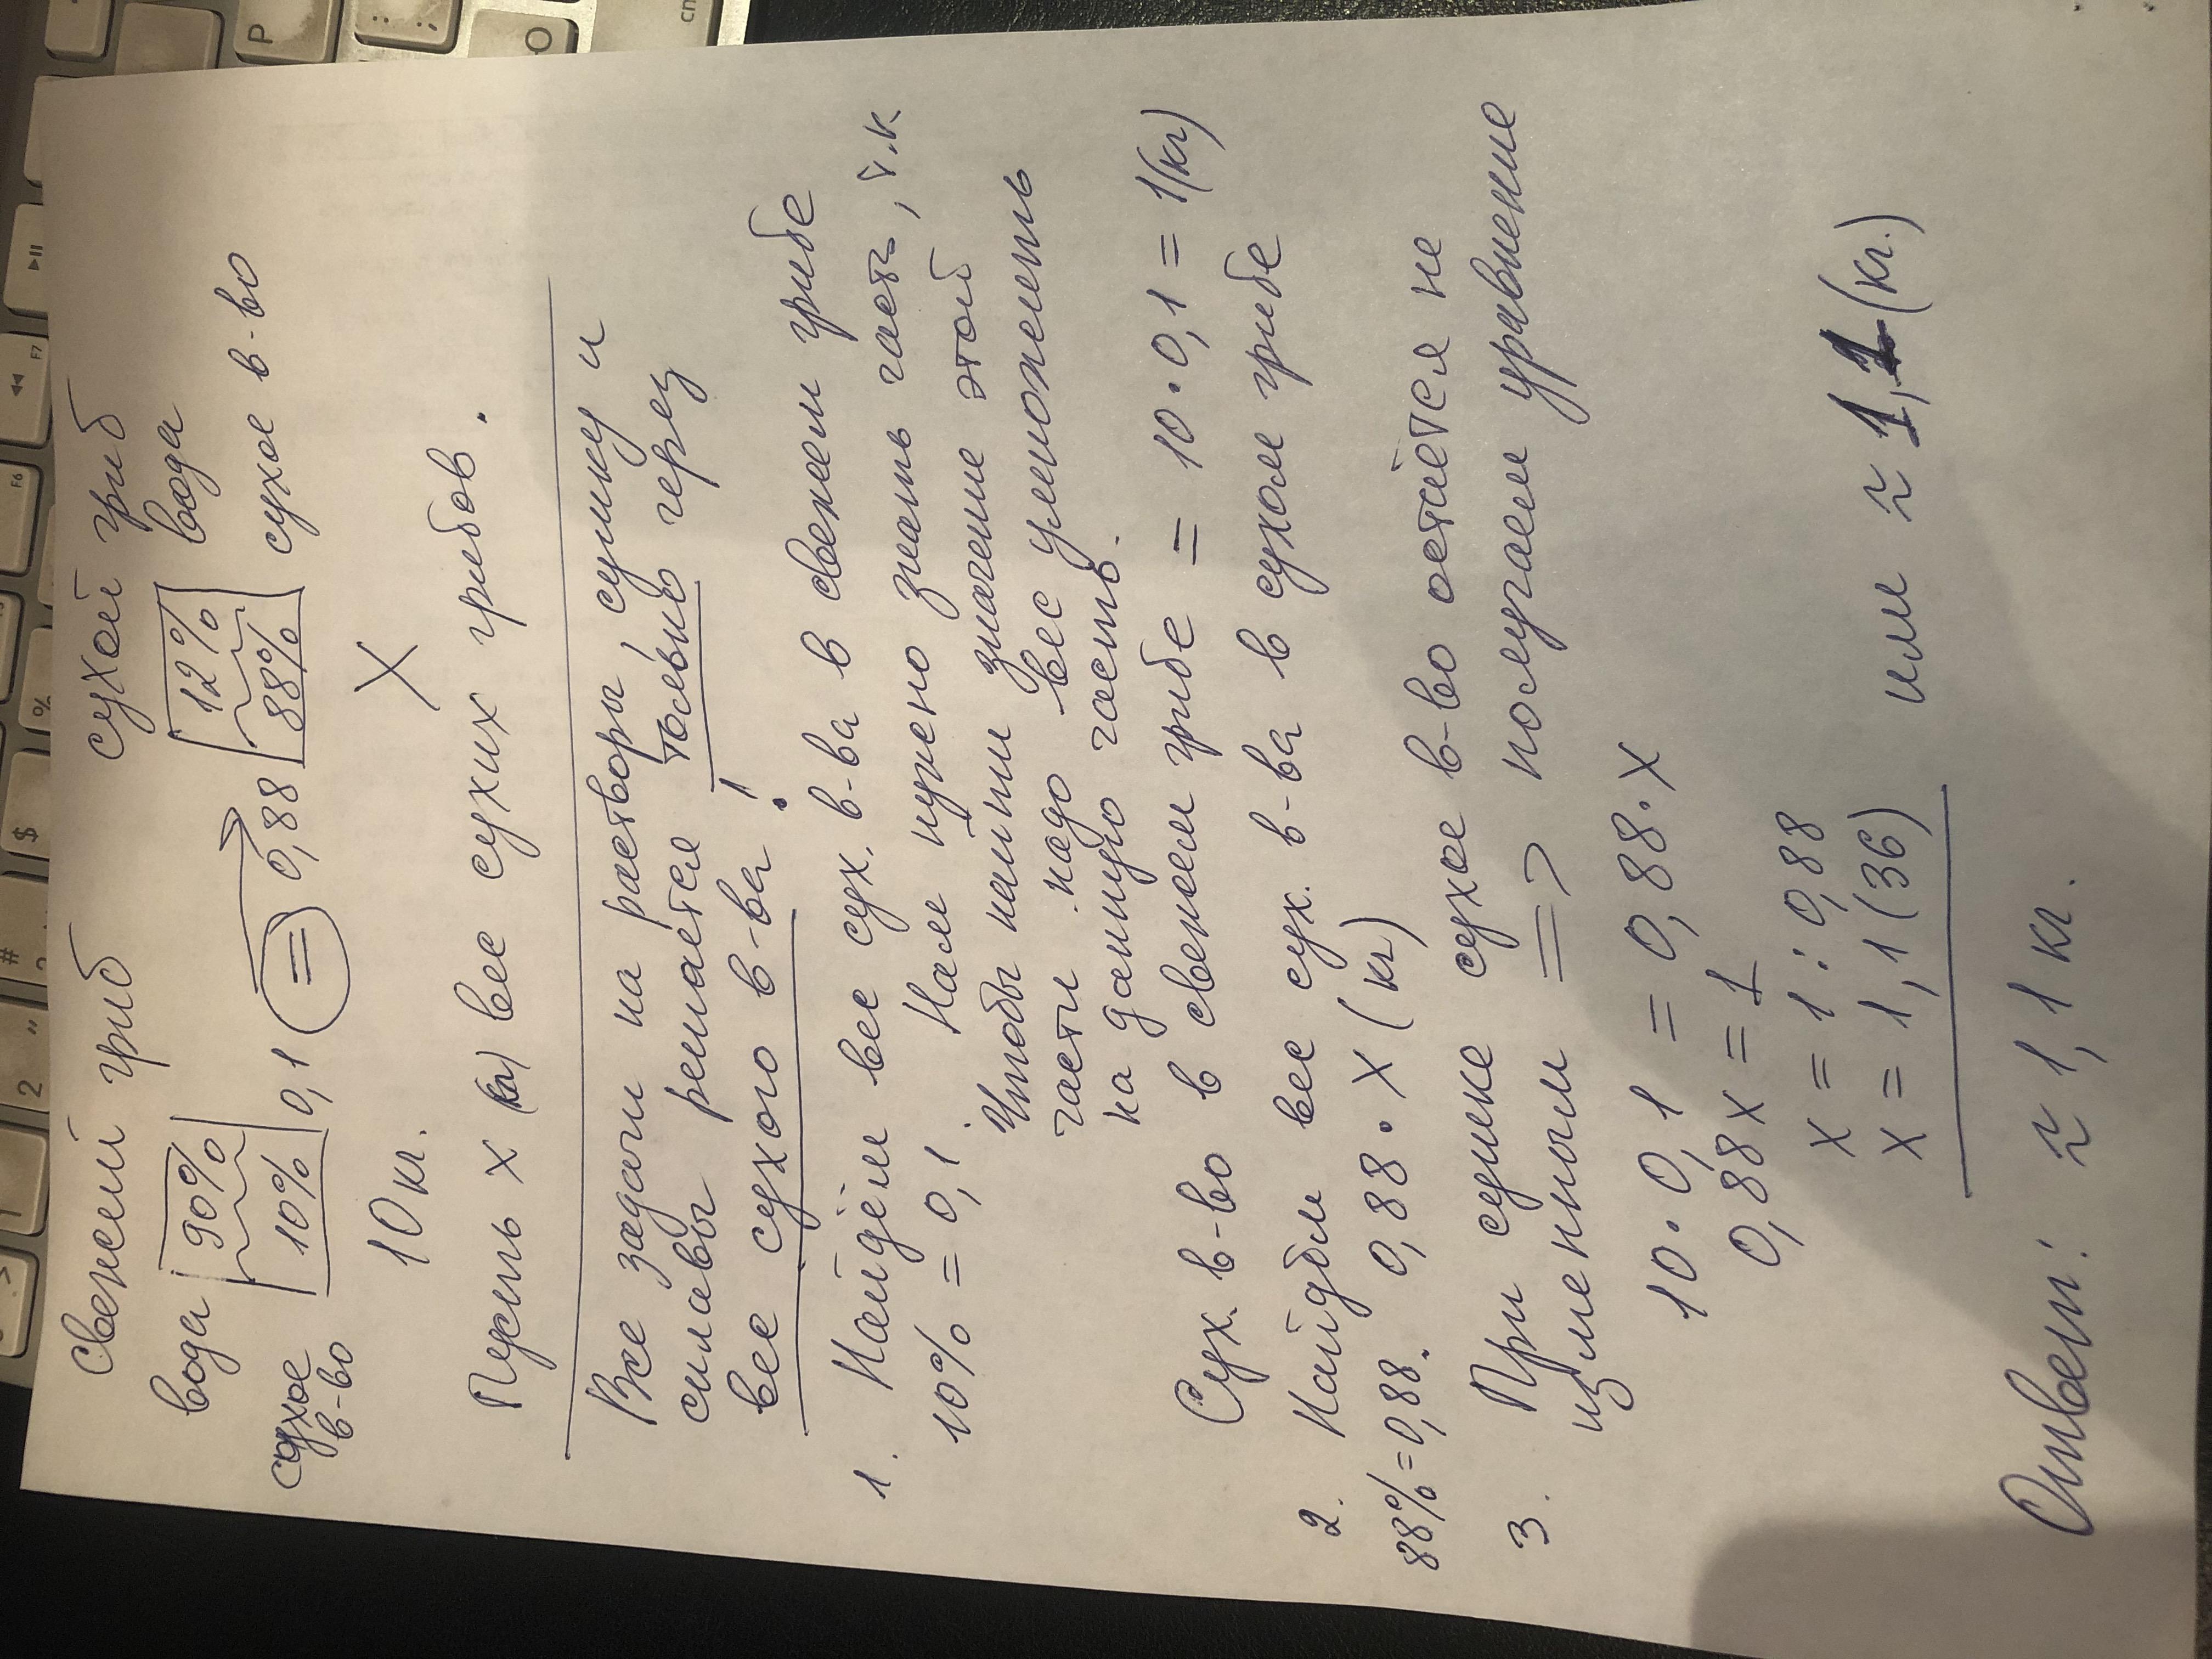 Свежий гриб сухой гриб
вода 90% 12% вода
сухое в-во 10% 0,1 = 0,88 88% сухое в-во
10 кг. X
Пусть x (кг) вес сухих грибов.
Все задачи на растворы, сушку и
сплавы решается только через
вес сухого в-ва!
1. Найдём вес сух. в-ва в свежем грибе
10% = 0,1. Нам нужно знать часть, т.к
чтобы найти значение этой
части надо вес умножить
на данную часть.
Сух. в-во в свежем грибе = 10 · 0,1 = 1(кг)
2. Найдём вес сух. в-ва в сухом грибе
88% = 0,88. 0,88 · x (кг)
3. При сушке сухое в-во остаётся не
изменным => получаем уравнение
10 · 0,1 = 0,88 · x
0,88x = 1
x = 1 : 0,88
x = 1,1(36) или ≈ 1,1 (кг.)
Ответ: ≈ 1,1 кг.
P
O
F7
F6
%
$
#
2
"